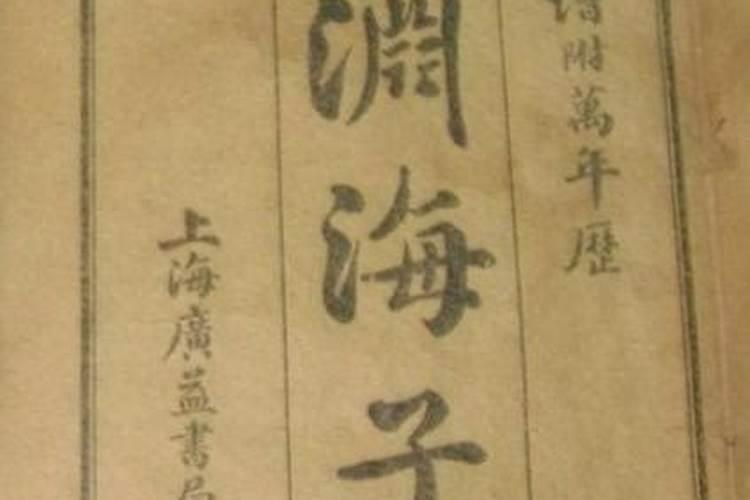 增附萬年歷
淵海子
上海廣益書局